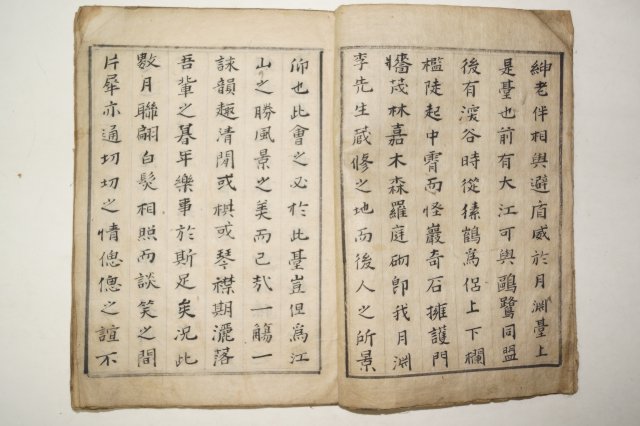 紳老伴相與避盾威於月淵臺上
是臺也前有大江可與鷗鷺同盟
後有濩谷時從猿鶴為侶上下欄
檻陡起中霄而怪巖奇石擁護門
墻茂林嘉木森羅庭砌卽我月淵
李先生藏修之地而後人之所景
仰也此會之必於此臺豈但為江
山之勝風景之美而已哉一觴一
詠韻趣清閒或棋或琴襟期灑落
吾輩之暮年樂事於斯足矣況此
數月聯翩白髮相照而談笑之間
片犀亦通切切之情偲偲之誼不